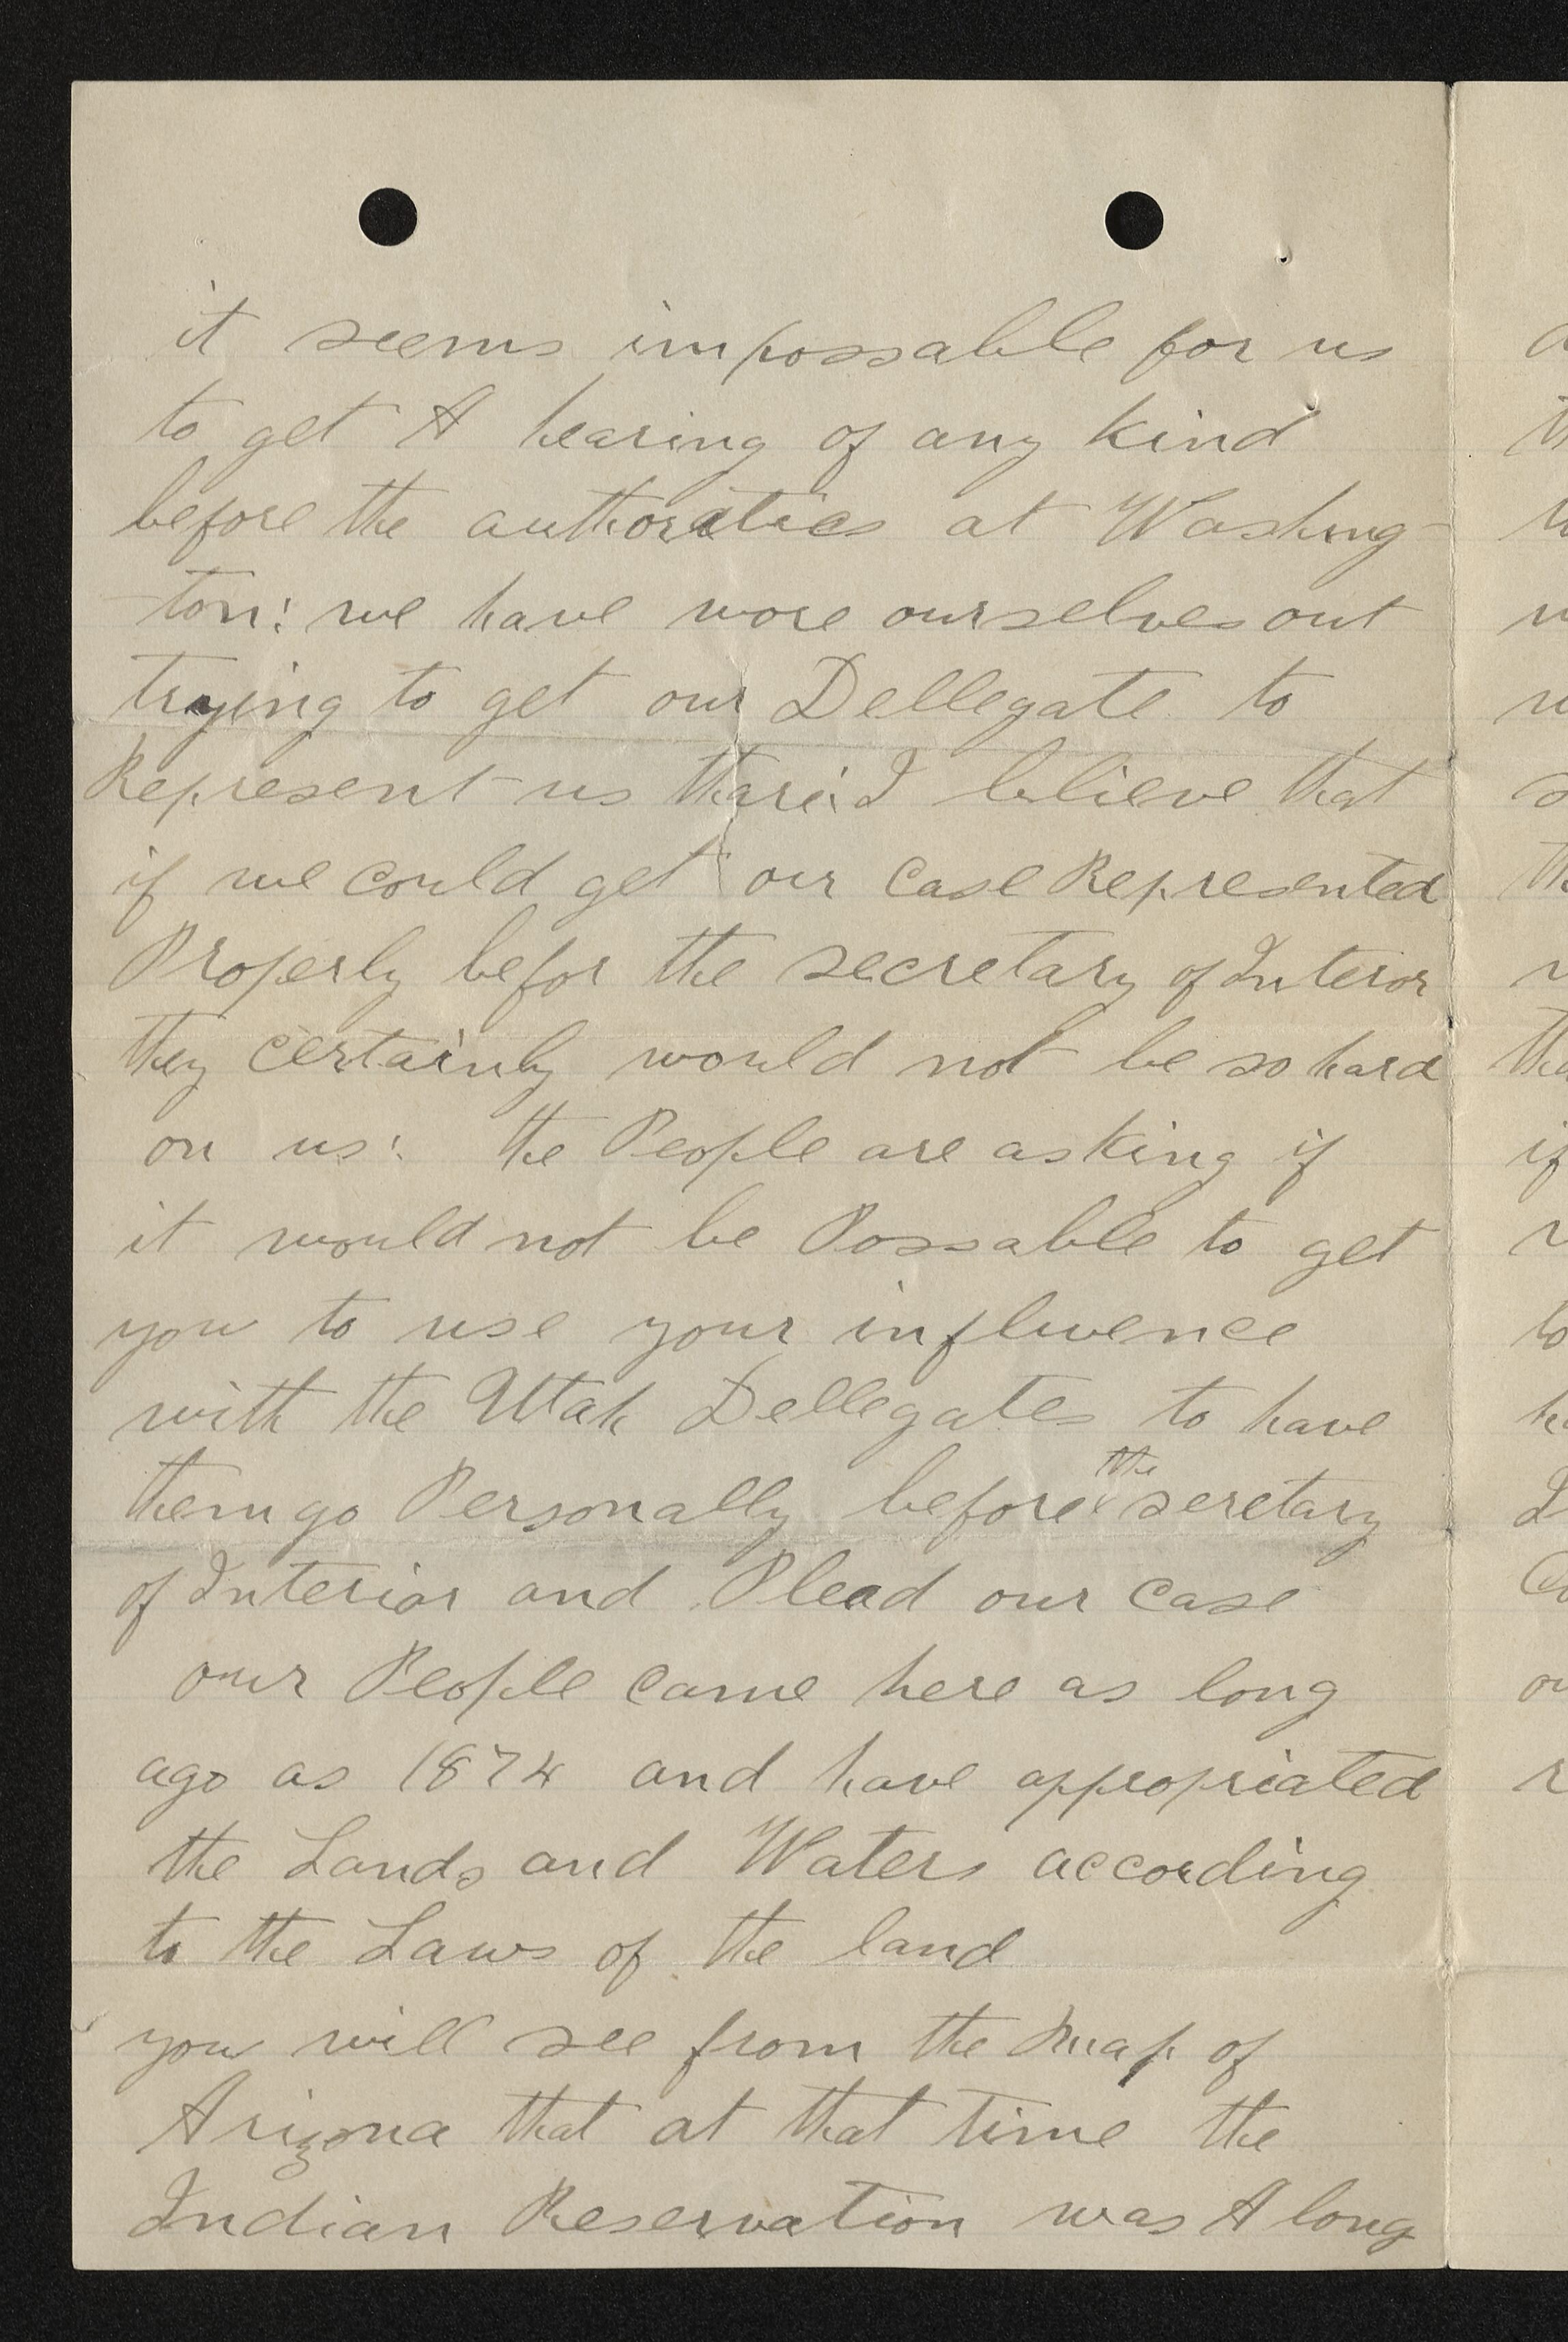 it seems impossable for us
to get A hearing of any kind
before the authoraties at Washing-
ton: we have wore ourselves out
trying to get our Dellegate to
Represent us thare: I believe that
if we could get our case Represented
Properly befor the secretary of Interor
they certainly would not be so hard
on us: the People are asking if
it would not be Possable to get
you to use your influence
with the Utah Dellegates to have
them go Personally before the seretary
of Interior and Plead our case
our People came here as long
ago as 1874 and have appropriated
the Lands and Waters according
to the Laws of the land
you will see from the map of
Arizona that at that time the
Indian Reservation was A long